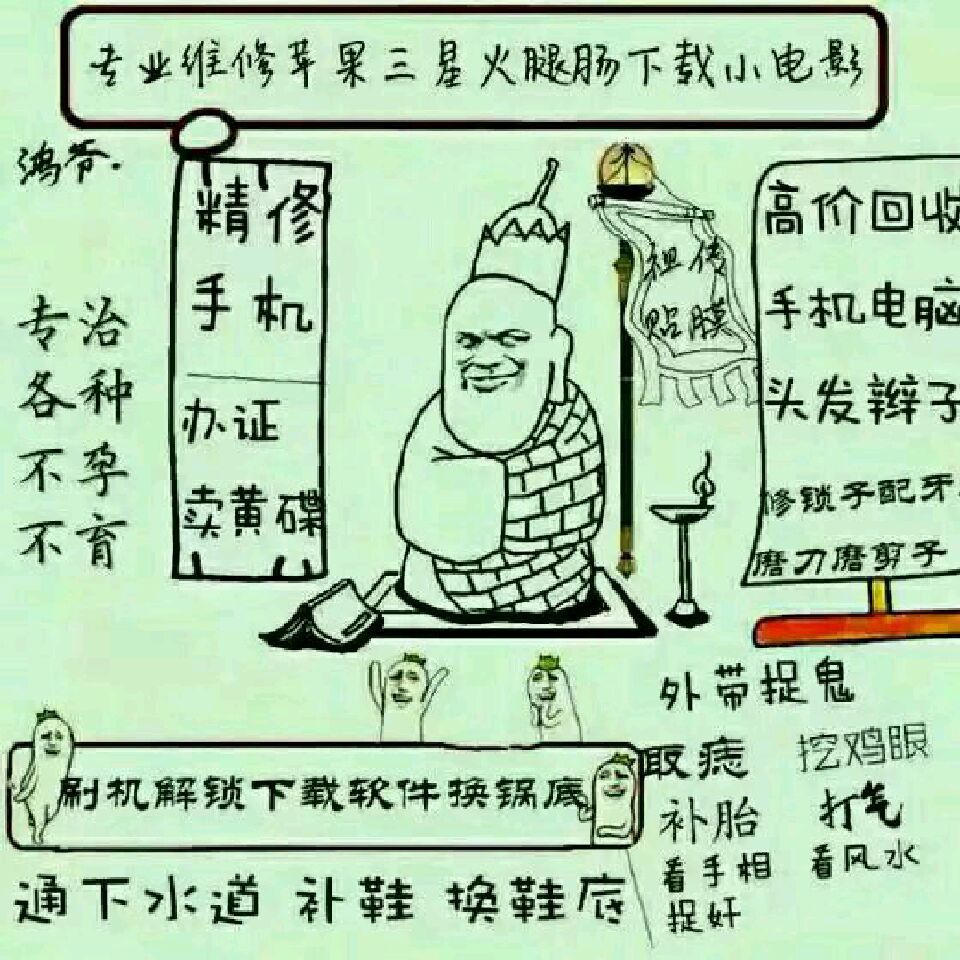 专业维修苹果三星火腿肠下载小电影
鸿爷.
专治
各种
不孕
不育
精修
手机
办证
卖黄碟
祖传
贴膜
高价回收
手机电脑
头发辫子
修锁子配牙
磨刀磨剪子
外带捉鬼
取痣 挖鸡眼
补胎 打气
看手相 看风水
捉奸
刷机解锁下载软件换锅底
通下水道 补鞋 换鞋底